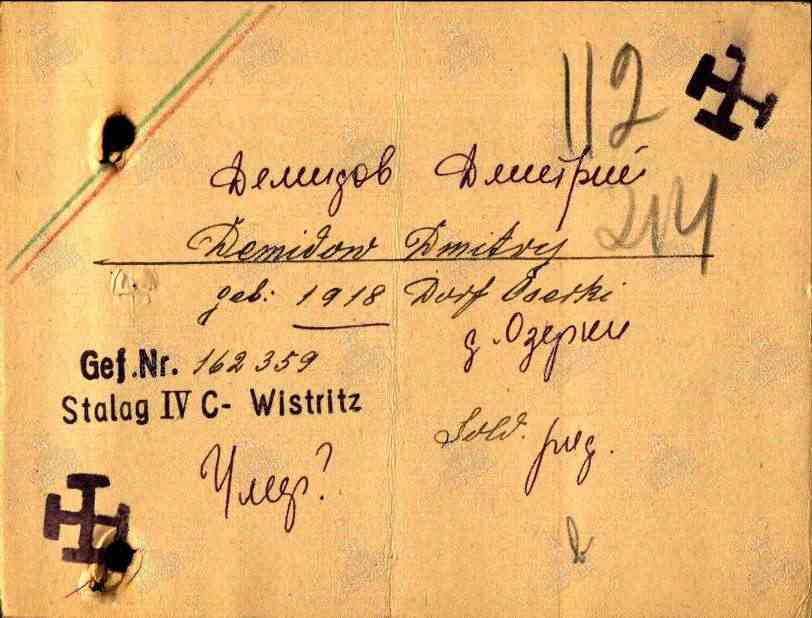 112
Демидов Дмитрий
214
Demidow Dmitry
geb. 1918 Dorf Oserki
д. Озерки
Gef.Nr. 162359
Stalag IV C- Wistritz
Sold. ряд.
Умер?